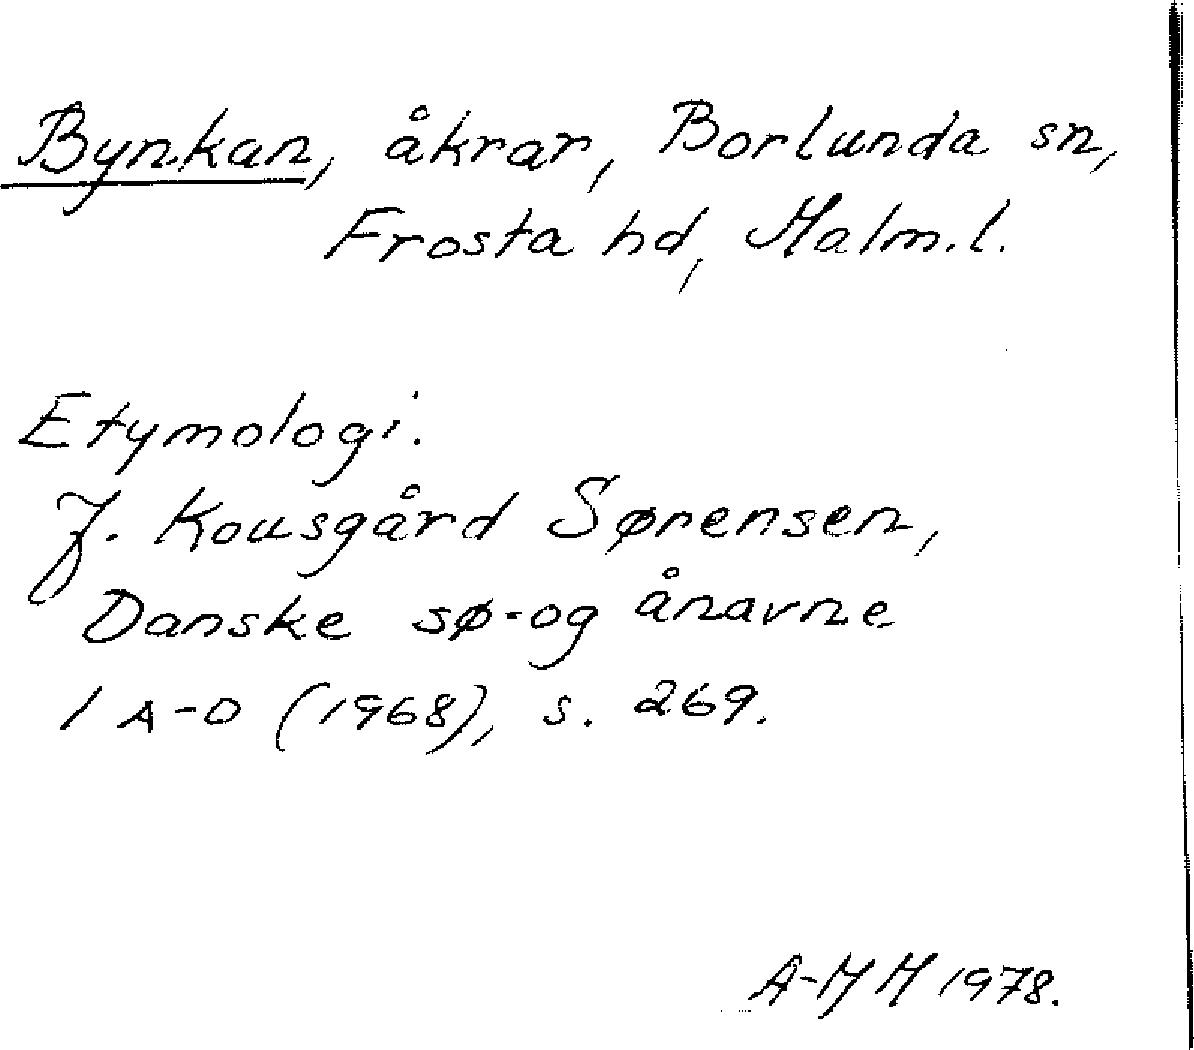 Bynkan, åkrar, Borlunda sn,
Frosta hd, Malm.l.
Etymologi.
J. Kousgård Sørensen,
Danske sø-og ånavne
1 A-D (1968), s. 269.
A-MM 1978.